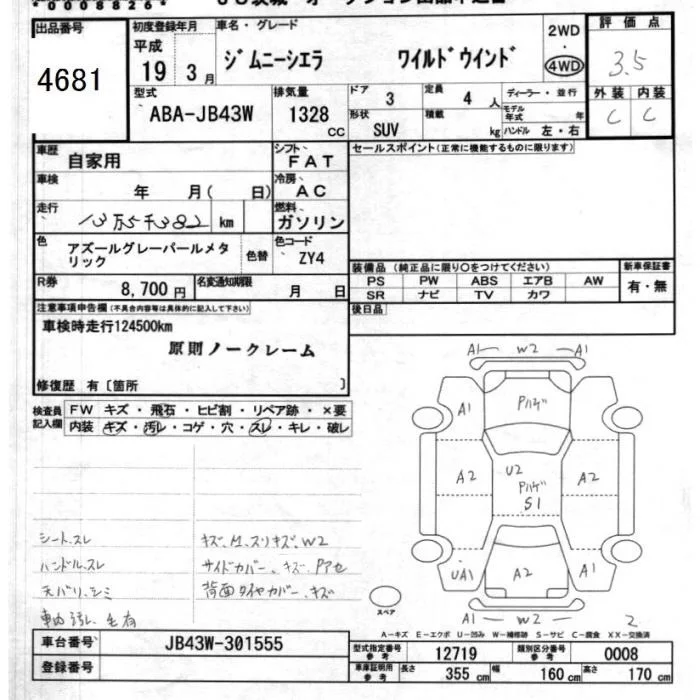 *0008826*
出品番号
4681
初度登録年月
平成
19 3月
車名・グレード
ジムニーシエラ ワイルドウインド
2WD
・
4WD
評価点
3.5
外装 内装
C C
型式
ABA-JB43W
排気量
1328
CC
ドア
3
定員
4 人
ディーラー・並行
モデル年式 年
形状
SUV
積載
kg
ハンドル 左・右
車歴
自家用
シフト
FAT
セールスポイント(正常に機能するものに限ります)
車検
年 月( 日)
冷房
AC
走行
13万5千382 km
燃料
ガソリン
色
アズールグレーパールメタリック
色替
色コード
ZY4
R券
8,700円
名変通知期限
月 日
装備品(純正品に限り○をつけてください)
PS PW ABS エアB AW
SR ナビ TV カワ
新車保証書
有・無
後日品
注意事項申告欄(不具合内容等は具体的に記入して下さい)
車検時走行124500km
原則ノークレーム
修復歴 有〔箇所 〕
検査員記入欄
FW キズ・飛石・ヒビ割・リペア跡・×要
内装 キズ・汚レ・コゲ・穴・スレ・キレ・破レ
A1 W2 A1
A1 Pハゲ A1
A2 U2 Pハゲ S1 A2
UA1 A2 A1
A1 W2 A1
2
スペア
シート.スレ
ハンドル.スレ
天バリ.シミ
車内汚レ.毛有
キズ.M.スリキズ.W2
サイドカバー.キズ.Pアセ
背面タイヤカバー.キズ
A-キズ E-エクボ U-凹み W-補修跡 S-サビ C-腐食 XX-交換済
車台番号
JB43W-301555
登録番号
型式指定番号 参考
12719
類別区分番号 参考
0008
車庫証明用 参考
長さ 355 cm 幅 160 cm 高さ 170 cm